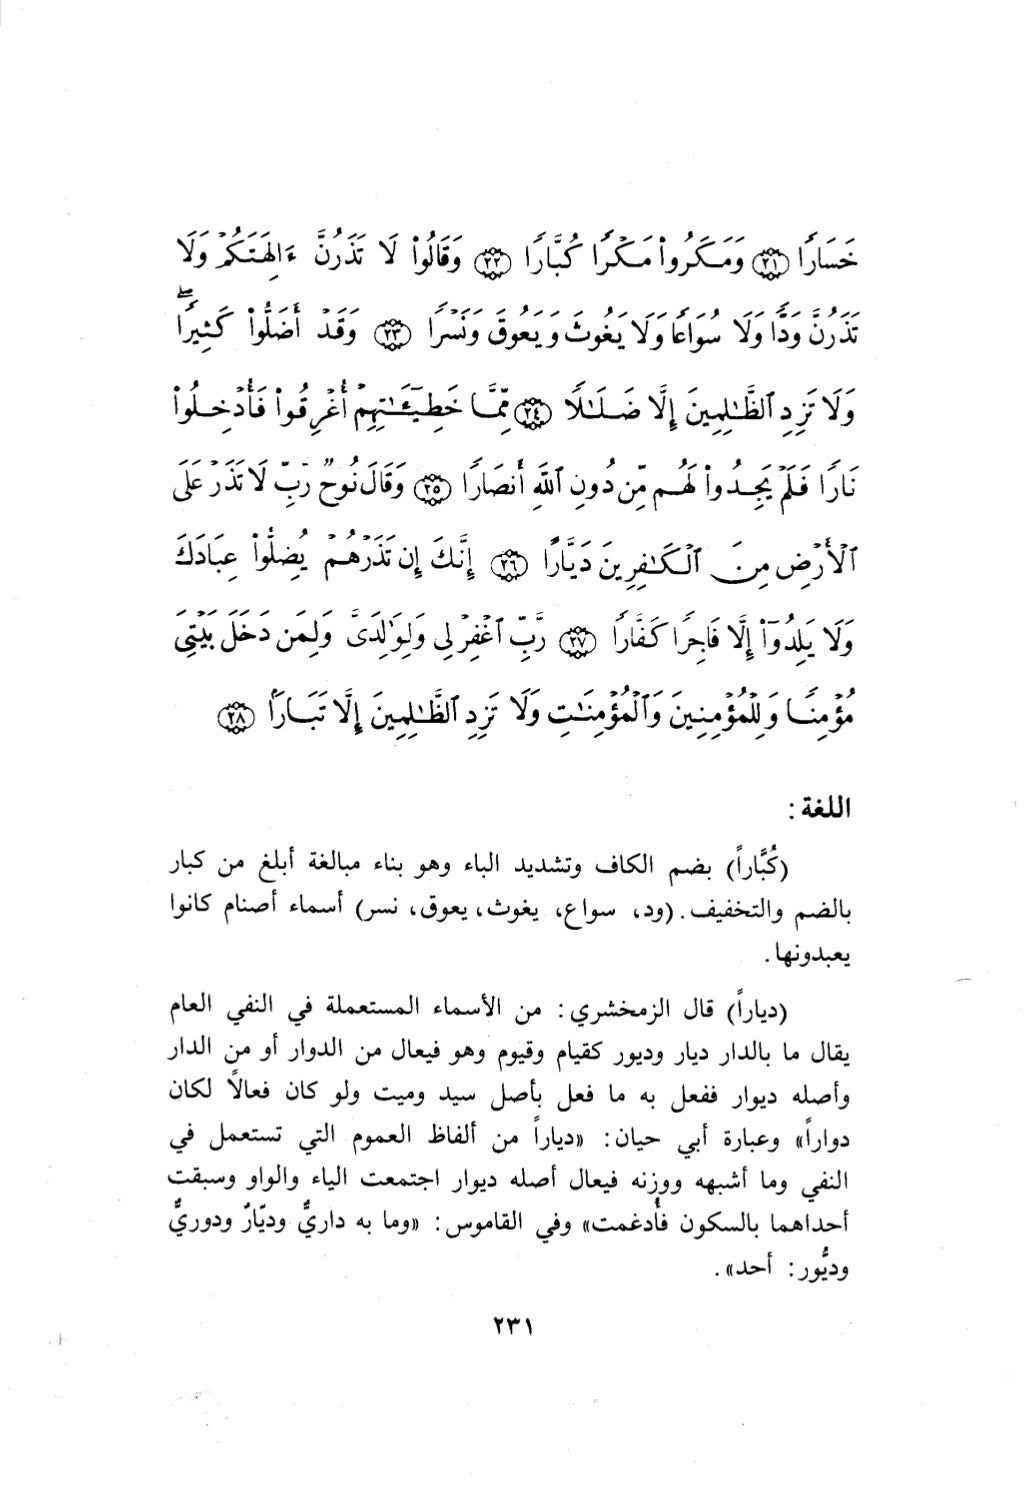 خَسَارًا ﴿٢١﴾ وَمَكَرُوا۟ مَكْرًا كُبَّارًا ﴿٢٢﴾ وَقَالُوا۟ لَا تَذَرُنَّ ءَالِهَتَكُمْ وَلَا
تَذَرُنَّ وَدًّا وَلَا سُوَاعًا وَلَا يَغُوثَ وَيَعُوقَ وَنَسْرًا ﴿٢٣﴾ وَقَدْ أَضَلُّوا۟ كَثِيرًا ۖ
وَلَا تَزِدِ ٱلظَّـٰلِمِينَ إِلَّا ضَلَـٰلًا ﴿٢٤﴾ مِّمَّا خَطِيٓـَٔـٰتِهِمْ أُغْرِقُوا۟ فَأُدْخِلُوا۟
نَارًا فَلَمْ يَجِدُوا۟ لَهُم مِّن دُونِ ٱللَّهِ أَنصَارًا ﴿٢٥﴾ وَقَالَ نُوحٌ رَّبِّ لَا تَذَرْ عَلَى
ٱلْأَرْضِ مِنَ ٱلْكَـٰفِرِينَ دَيَّارًا ﴿٢٦﴾ إِنَّكَ إِن تَذَرْهُمْ يُضِلُّوا۟ عِبَادَكَ
وَلَا يَلِدُوٓا۟ إِلَّا فَاجِرًا كَفَّارًا ﴿٢٧﴾ رَّبِّ ٱغْفِرْ لِى وَلِوَٰلِدَىَّ وَلِمَن دَخَلَ بَيْتِىَ
مُؤْمِنًا وَلِلْمُؤْمِنِينَ وَٱلْمُؤْمِنَـٰتِ وَلَا تَزِدِ ٱلظَّـٰلِمِينَ إِلَّا تَبَارًا ﴿٢٨﴾
اللغة :
(كُبَّاراً) بضم الكاف وتشديد الباء وهو بناء مبالغة أبلغ من كبار
بالضم والتخفيف. (ود، سواع، يغوث، يعوق، نسر) أسماء أصنام كانوا
يعبدونها.
(دياراً) قال الزمخشري: من الأسماء المستعملة في النفي العام
يقال ما بالدار ديار وديور كقيام وقيوم وهو فيعال من الدوار أو من الدار
وأصله ديوار ففعل به ما فعل بأصل سيد وميت ولو كان فعالاً لكان
دواراً» وعبارة أبي حيان: «دياراً من ألفاظ العموم التي تستعمل في
النفي وما أشبهه ووزنه فيعال أصله ديوار اجتمعت الياء والواو وسبقت
أحداهما بالسكون فأدغمت» وفي القاموس: «وما به داريٌّ وديّارٌ ودوريٌّ
وديُّور: أحد».
٢٣١